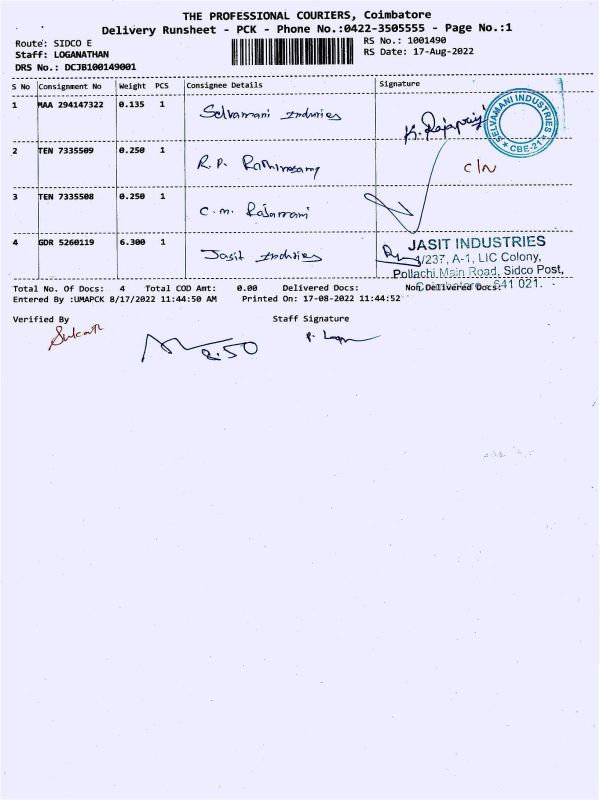 THE PROFESSIONAL COURIERS, Coimbatore
Delivery Runsheet - PCK - Phone No.:0422-3505555 - Page No.:1
Route: SIDCO E RS No.: 1001490
Staff: LOGANATHAN RS Date: 17-Aug-2022
DRS No.: DCJB100149001
S No Consignment No Weight PCS Consignee Details Signature
1 MAA 294147322 0.135 1 Selvamani Indnries K. Rajapriya
SELVAMANI INDUSTRIES
★ CBE-21 ★
2 TEN 7335509 0.250 1 R.P. Rathinasamy C/N
3 TEN 7335508 0.250 1 C.M. Rajamani
4 GDR 5260119 6.300 1 Jasit Indnries
JASIT INDUSTRIES
4/237, A-1, LIC Colony,
Pollachi Main Road, Sidco Post,
Coimbatore - 641 021.
Total No. Of Docs: 4 Total COD Amt: 0.00 Delivered Docs: Non Delivered Docs:
Entered By :UMAPCK 8/17/2022 11:44:50 AM Printed On: 17-08-2022 11:44:52
Verified By Staff Signature
8.50